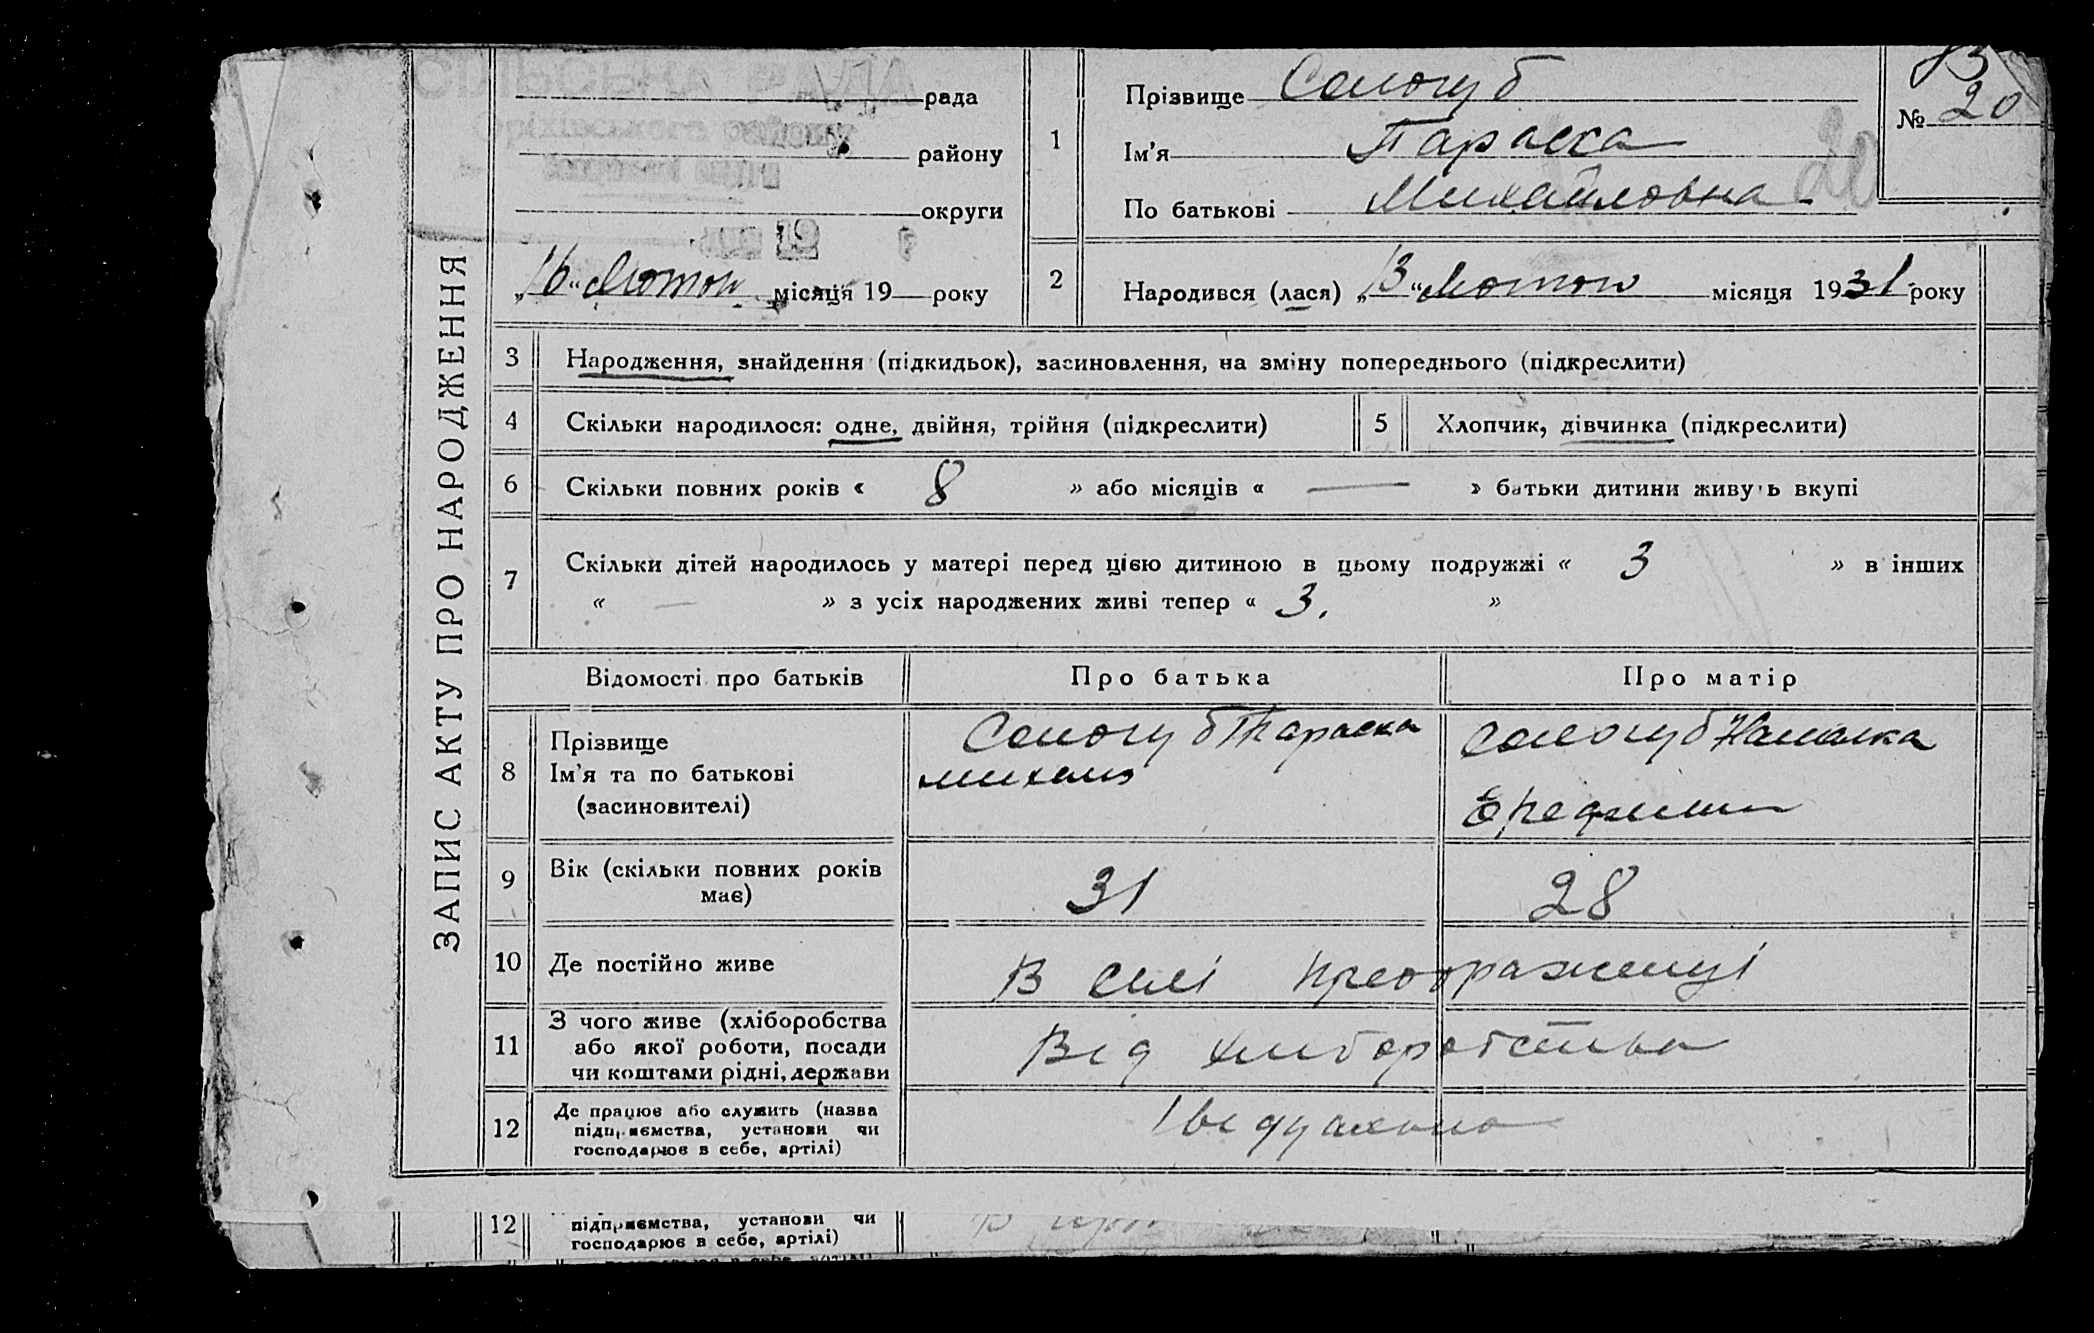 ЗАПИС АКТУ ПРО НАРОДЖЕННЯ
СІЛЬСЬКА РАДА
рада
Оріхівського району
району
округи
„16“ Лютого місяця 19 року
1
Прізвище Сологуб
Ім’я Параска
По батькові Михайловна
№ 20
83
20
2
Народився (лася) „13“ Лютого місяця 1931 року
3 Народження, знайдення (підкидьок), засиновлення, на зміну попереднього (підкреслити)
4 Скільки народилося: одне, двійня, трійня (підкреслити)
5 Хлопчик, дівчинка (підкреслити)
6 Скільки повних років « 8 » або місяців « — » батьки дитини живуть вкупі
7 Скільки дітей народилось у матері перед цією дитиною в цьому подружжі « 3 » в інших
« — » з усіх народжених живі тепер « 3. »
Відомості про батьків
Про батька
Про матір
8
Прізвище
Ім’я та по батькові
(засиновителі)
Сологуб Параска
Сологуб Наталка
9
Вік (скільки повних років
має)
31
28
10 Де постійно живе
В селі Преображенці
11
З чого живе (хліборобства
або якої роботи, посади
чи коштами рідні, держави
Від хліборобства
12
Де працює або служить (назва
підприємства, установи чи
господарює в себе, артілі)
12
підприємства, установи чи
господарює в себе, артілі)